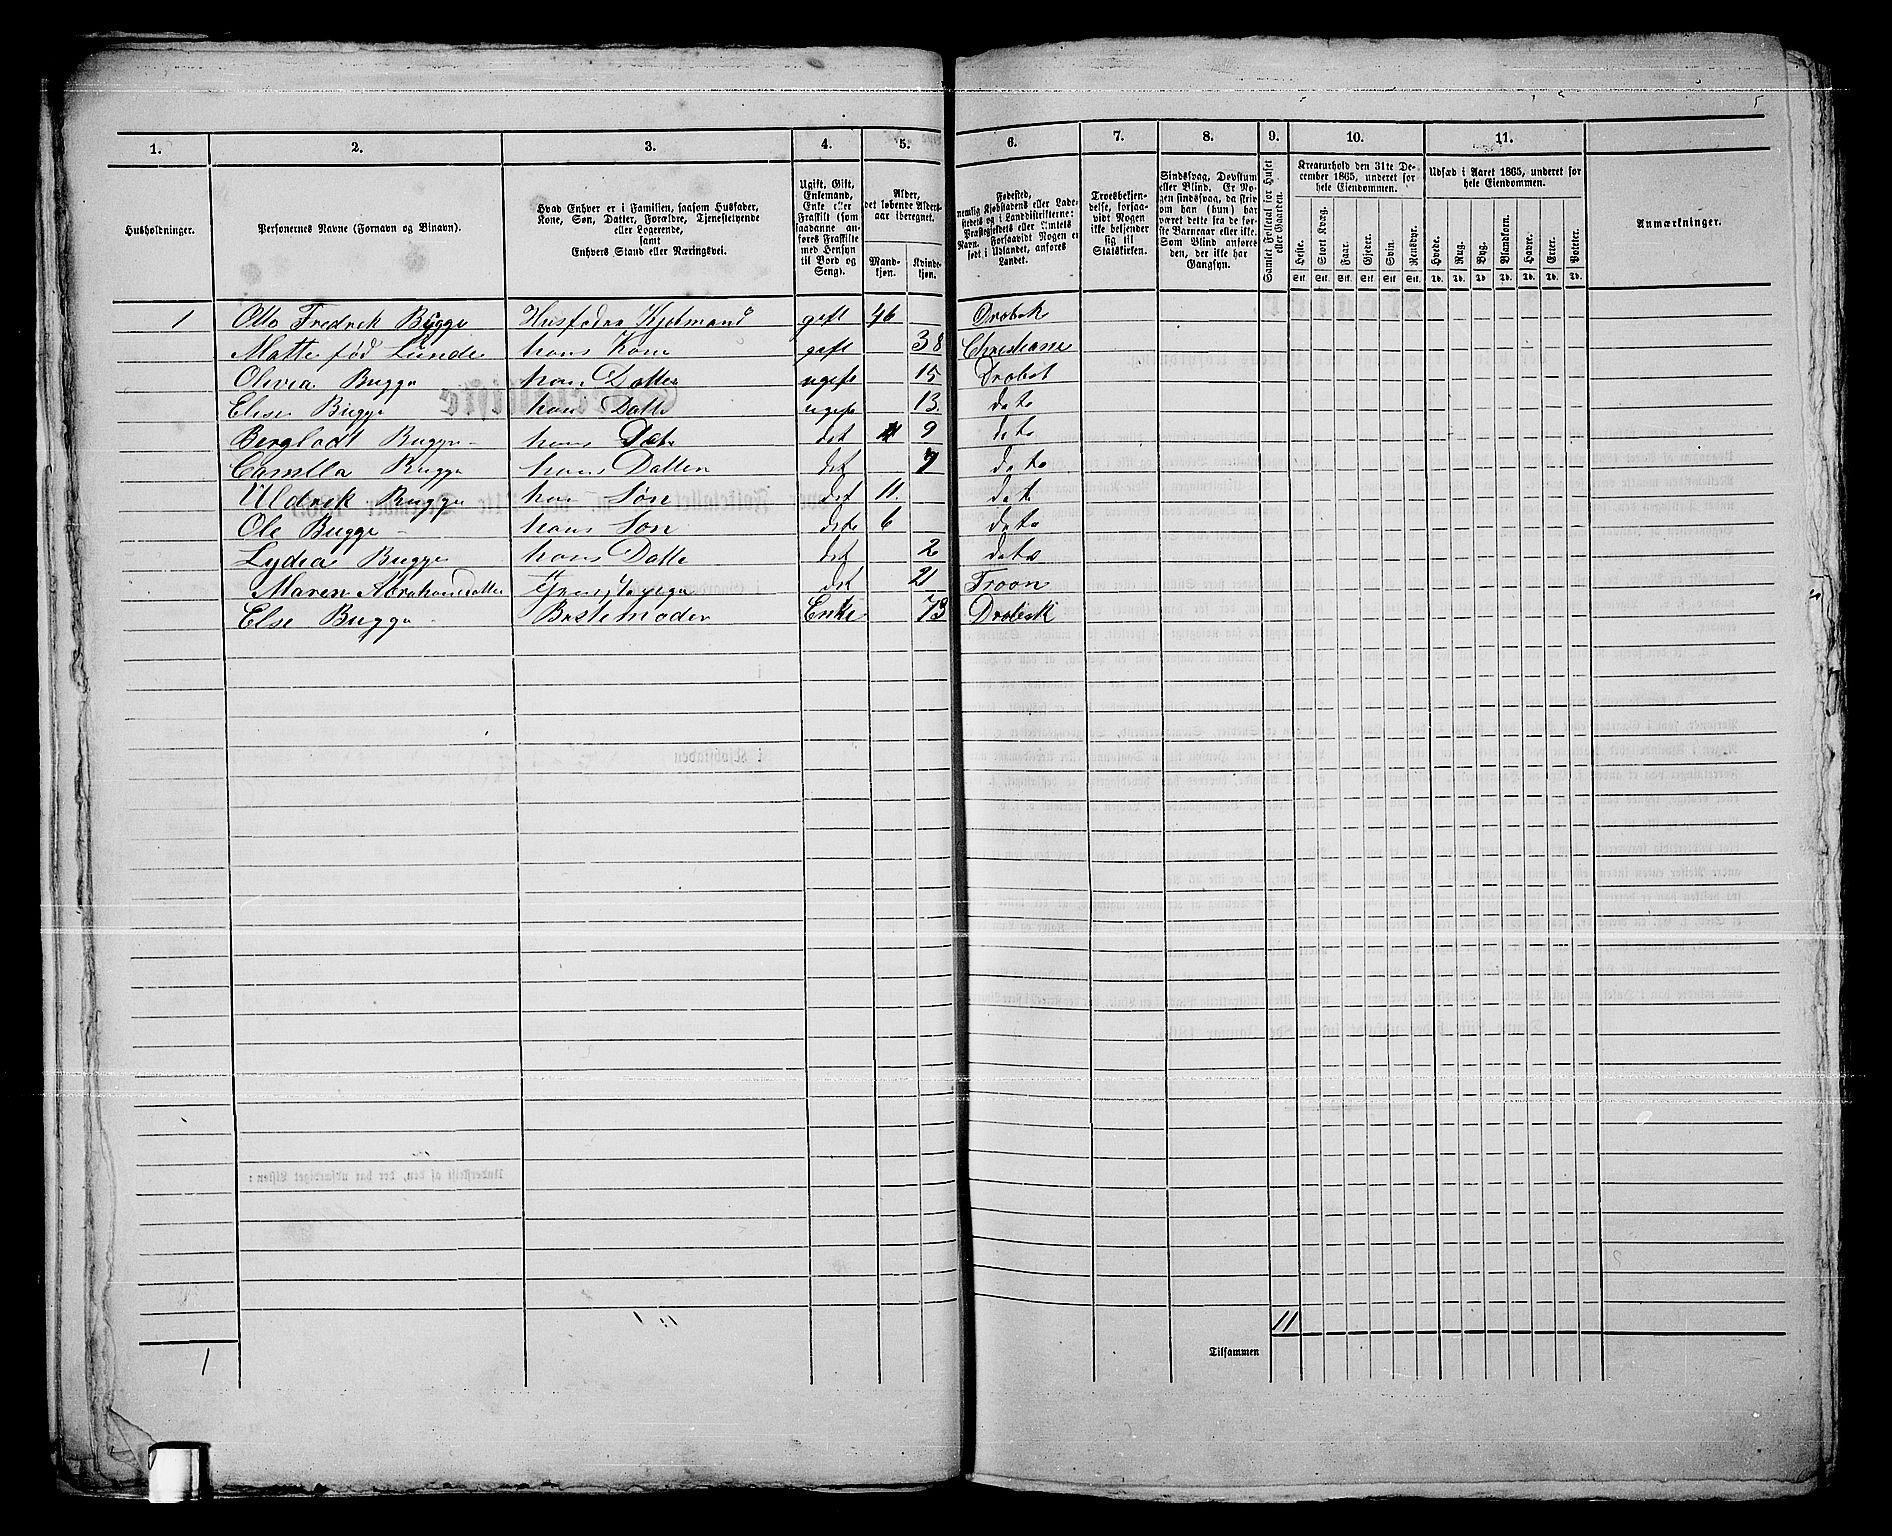 5
1. 2. 3. 4. 5. 6. 7. 8. 9. 10. 11.
Husholdninger.
Personernes Navne (Fornavn og Binavn).
Hvad Enhver er i Familien, saasom Husfader,
Kone, Søn, Datter, Forældre, Tjenestetyende
eller Logerende,
samt
Enhvers Stand eller Næringsvei.
Ugift, Gift,
Enkemand,
Enke eller
Fraskilt (som
saadanne an-
føres Fraskilte
med Hensyn
til Bord og
Seng).
Alder,
det løbende Alders-
aar iberegnet.
Mand-
kjøn.
Kvinde-
kjøn.
Fødested,
nemlig Kjøbstadens eller Lade-
stedets og i Landdistrikterne:
Præstegjeldets eller Amtets
Navn. Forsaavidt Nogen er
født i Udlandet, anføres
Landet.
Troesbekjen-
delse, forsaa-
vidt Nogen
ikke bekjender
sig til
Statskirken.
Sindssvag, Døvstum
eller Blind. Er No-
gen sindssvag, da skriv
om han (hun) har
været dette fra de før-
ste Barneaar eller ikke.
Som Blind anføres
den, der ikke har
Gangsyn.
Samlet Folketal for Huset
eller Gaarden.
Kreaturhold den 31te De-
cember 1865, underet for
hele Eiendommen.
Heste. Stort Kvæg. Faar. Gjeder. Svin. Rensdyr.
Stk. Stk. Stk. Stk. Stk. Stk.
Udsæd i Aaret 1865, underet for
hele Eiendommen.
Hvede. Rug. Byg. Blandkorn. Havre. Erter. Poteter.
Td. Td. Td. Td. Td. Td. Td.
Anmærkninger.
1 Otto Fredrek Bugge Husfader Kjøbmand gift 46 Drøbak
Matte fød Lunde hans Kone gift 38 Christiania
Olivia Bugge hans Datter ugift 15 Drøbak
Elise Bugge hans Datte ugift 13. dato
Berglodt Bugge hans Dat 9 dato
Camilla Bugge hans Datter det 7 dato
Uldrek Bugge hans Søn det 11. dato
Ole Bugge hans Søn dto 6 dato
Lydia Bugge hans Datte det 2 dato
Maren Abrahamsdatter det 21
Else Bugge Bestemoder Enke 73 Drøbak
11
Tilsammen
1